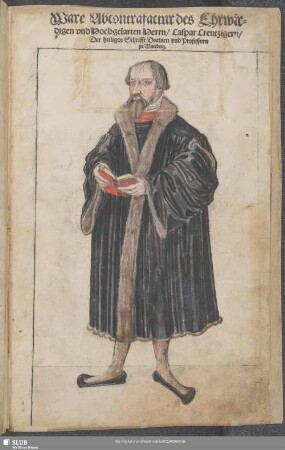 Ware Abcontrafactur des Ehrwir-
digen vnd Hochgelarten Herrn/ Caspar Creutzigern/
Der heiligen Schrifft Doctorn vnd Professorn
zu Wittenberg.
SLUB
Wir führen Wissen.